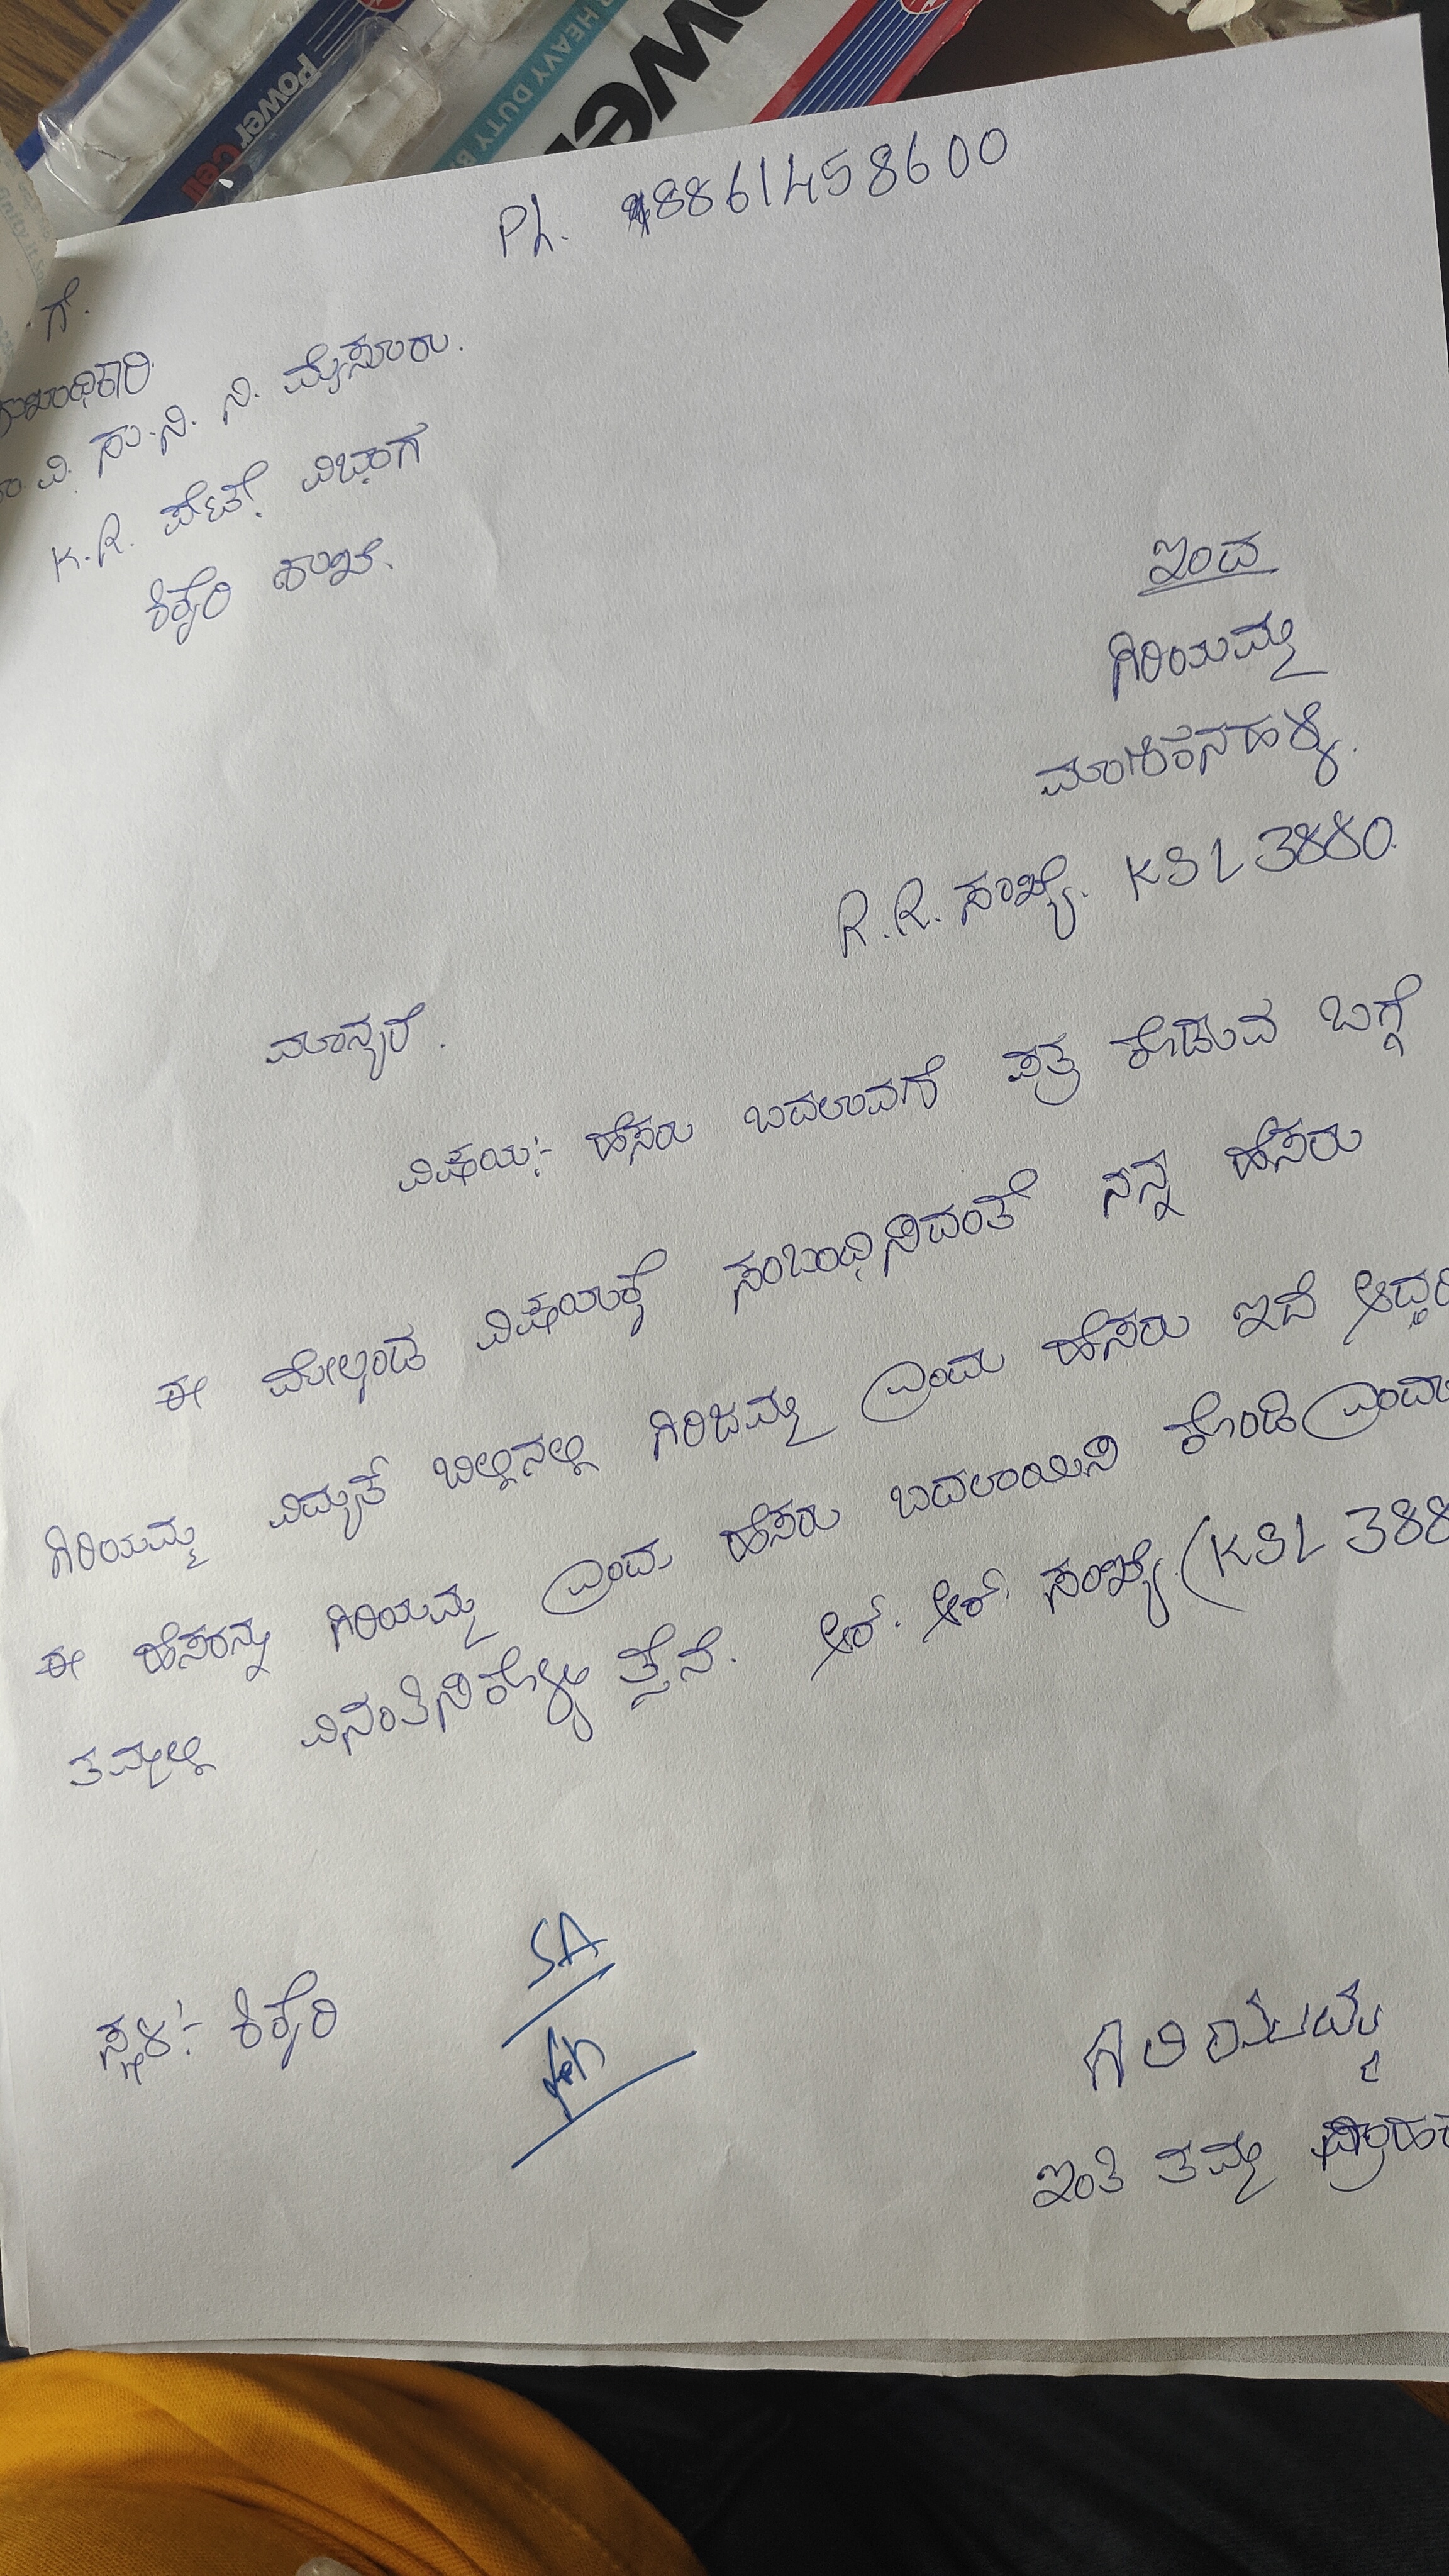 Power Cell
HEAVY DUTY
Ph. 8861458600
ಗೆ.
ವಿ. ಸ.ನಿ. ನಿ. ಮೈಸೂರು.
K.R. ಪೇಟೆ ವಿಭಾಗ
ಕಿಕ್ಕೇರಿ ಶಾಖೆ.
ಇಂದ
ಗಿರಿಯಮ್ಮ
R.R. ಸಂಖ್ಯೆ. KSL 3880.
ಮಾನ್ಯರೆ.
ವಿಷಯ:- ಹೆಸರು ಬದಲಾವಣೆ ಪತ್ರ ಕೊಡುವ ಬಗ್ಗೆ
ಈ ಮೇಲ್ಕಂಡ ವಿಷಯಕ್ಕೆ ಸಂಬಂಧಿಸಿದಂತೆ ನನ್ನ ಹೆಸರು
ಗಿರಿಯಮ್ಮ ವಿದ್ಯುತ್ ಬಿಲ್ಲಿನಲ್ಲಿ ಗಿರಿಜಮ್ಮ ಎಂದು ಹೆಸರು ಇದೆ
ಈ ಹೆಸರನ್ನು ಗಿರಿಯಮ್ಮ ಎಂದು ಹೆಸರು ಬದಲಾಯಿಸಿ ಕೊಂಡಿ
ತಮ್ಮಲ್ಲಿ ವಿನಂತಿಸಿಕೊಳ್ಳುತ್ತೆನೆ. ಆರ್. ಆರ್. ಸಂಖ್ಯೆ (KSL 388
ಸ್ಥಳ:- ಕಿಕ್ಕೇರಿ
SA
ಗಿರಿಯಮ್ಮ
ಇಂತಿ ತಮ್ಮ